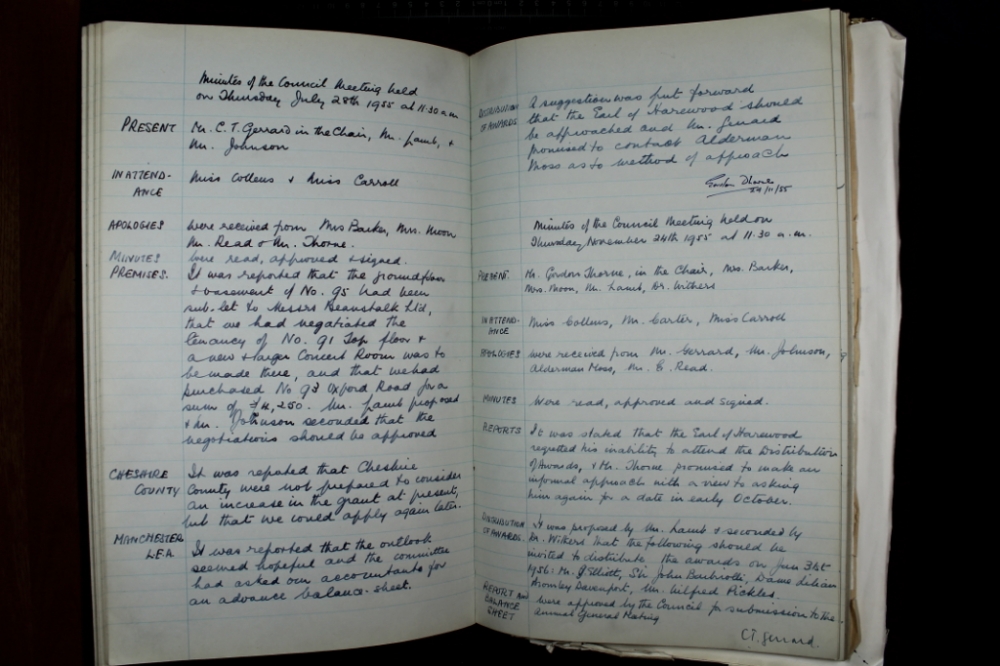 Minutes of the Council Meeting held
on Thursday July 28th 1955 at 11.30 a.m.
PRESENT Mr. C. T. Gerrard in the Chair, Mr. Lamb, +
Mr. Johnson
IN ATTEND- Miss Collens + Miss Carroll
ANCE
APOLOGIES were received from Mrs Barker, Mrs. Moon
Mr. Read & Mr. Thorne.
MINUTES were read, approved + signed.
PREMISES. It was reported that the ground floor
+ basement of No. 95 had been
sub-let to Messrs Beanstalk Ltd,
that we had negotiated the
tenancy of No. 91 Top floor +
a new + larger Concert Room was to
be made there, and that we had
purchased No 93 Oxford Road for a
sum of £4,250. Mr. Lamb proposed
+ Mr. Johnson seconded that the
negotiations should be approved
CHESHIRE It was reported that Cheshire
COUNTY County were not prepared to consider
an increase in the grant at present,
but that we could apply again later.
MANCHESTER
L.E.A. It was reported that the outlook
seemed hopeful and the committee
had asked our accountants for
an advance balance-sheet.
DISTRIBUTION A suggestion was put forward
OF AWARDS that the Earl of Harewood should
be approached and Mr. Gerrard
promised to contact Alderman
Moss as to method of approach
Gordon Thorne
24/11/55
Minutes of the Council Meeting held on
Thursday November 24th 1955 at 11.30 a.m.
PRESENT. Mr. Gordon Thorne, in the Chair, Mrs. Barker,
Mrs. Moon, Mr. Lamb, Dr. Withers
IN ATTEND- Miss Collens, Mr. Carter, Miss Carroll
ANCE
APOLOGIES were received from Mr. Gerrard, Mr. Johnson,
Alderman Moss, Mr. E. Read.
MINUTES Were read, approved and signed.
REPORTS It was stated that the Earl of Harewood
regretted his inability to attend the Distribution
of Awards, + Mr. Thorne promised to make an
informal approach with a view to asking
him again for a date in early October.
DISTRIBUTION It was proposed by Mr. Lamb + seconded by
OF AWARDS. that the following should be
invited to distribute the awards on Jan 31st
1956: Mr. Elliott, Sir John Barbirolli, Dame Lilian
Bromley Davenport, Mr. Wilfred Pickles.
REPORT AND were approved by the Council for submission to the
BALANCE Annual General Meeting
SHEET
C.T. Gerrard.